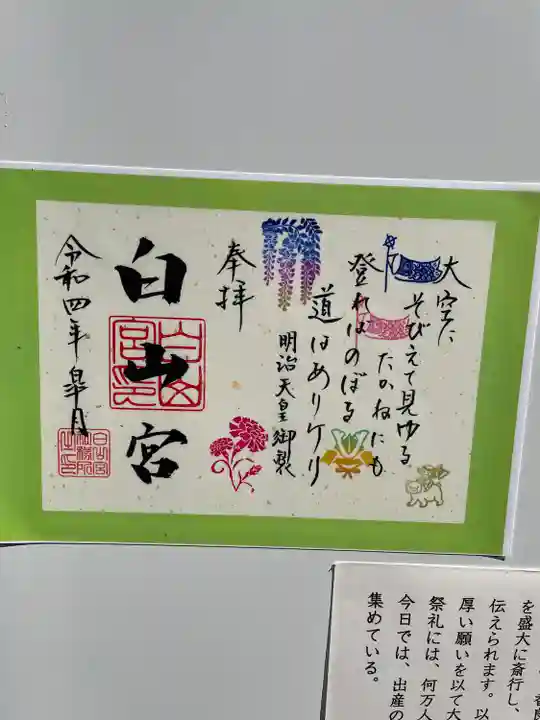 大空に
そびえて見ゆる
たかねにも
登ればのぼる
道はありけり
明治天皇御製
奉拝
白山宮
令和四年皐月
を盛大に斎行し、
伝えられます。以
厚い願いを以て大
祭礼には、何万人
今日では、出産の
集めている。